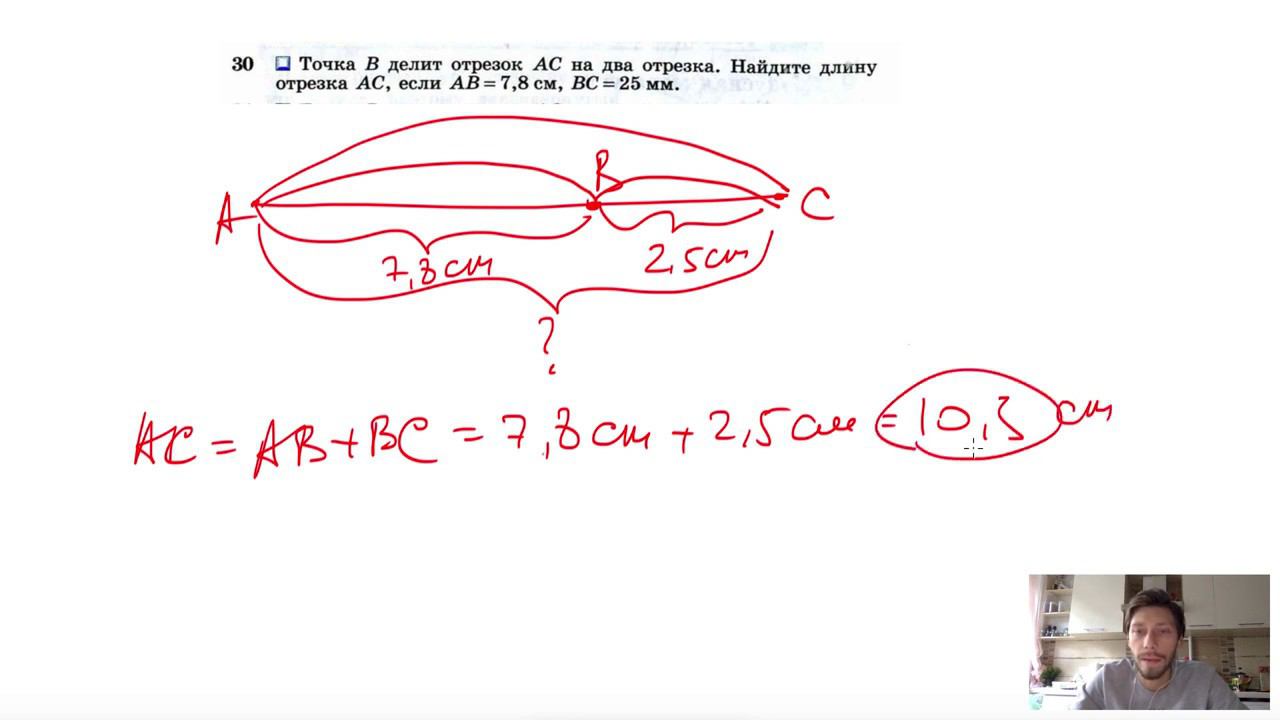 30 Точка B делит отрезок AC на два отрезка. Найдите длину
отрезка AC, если AB = 7,8 см, BC = 25 мм.
B
A
C
7,8 см
2,5 см
?
AC = AB + BC = 7,8 см + 2,5 см = 10,3 см